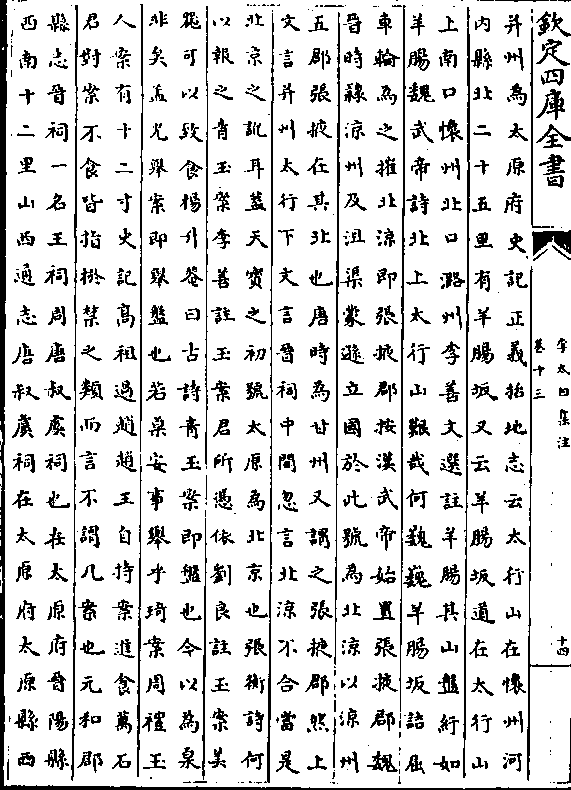 欽定四庫全書
李太白集注
卷十三
十四
并州為太原府史記正義括地志云太行山在懷州河
內縣北二十五里有羊腸坂又云羊腸坂道在太行山
上南口懷州北口潞州李善文選註羊腸其山盤紆如
羊腸魏武帝詩北上太行山艱哉何巍巍羊腸坂詰屈
車輪為之摧北涼即張掖郡按漢武帝始置張掖郡魏
晉時隸涼州及沮渠蒙遜立國於此號為北涼以涼州
五郡張掖在其北也唐時為甘州又謂之張掖郡然上
文言并州太行下文言晉祠中間忽言北涼不合當是
北京之訛耳蓋天寶之初號太原為北京也張衡詩何
以報之青玉案李善註玉案君所憑依劉良註玉案美
器可以致食楊升菴曰古詩青玉案即盤也今以為桌
非矣孟光舉案即舉盤也若桌安事舉乎琦案周禮玉
人案有十二寸史記高祖過趙趙王自持案進食萬石
君對案不食皆指棜禁之類而言不謂几案也元和郡
縣志晉祠一名王祠周唐叔虞祠也在太原府晉陽縣
西南十二里山西通志唐叔虞祠在太原府太原縣西